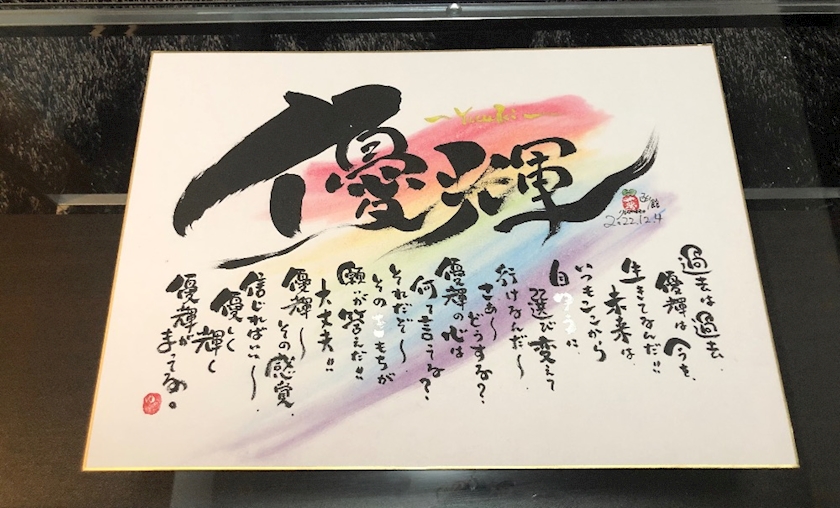 優輝
~Yuuki~
2022.12.4
過去は過去
優輝は今を、
生きてなんだ!!
未来は
いつもここから
自ゆうに
選び変えて
行けるんだ~
さぁ~どうする?
優輝の心は
何て言うな?
それだぞ~
そのきもちが
願いが答えだ!!
大丈夫!!
優輝~
その感覚、
信じればいい~
優しく
輝く
優輝が
まってるな。